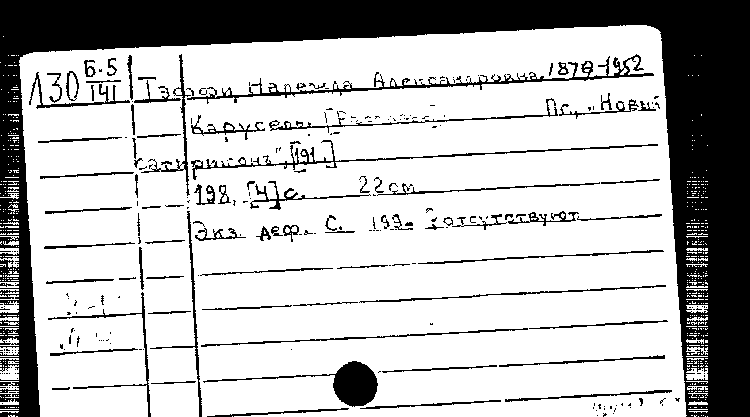 130 Б-5/141 Тэффи, Надежда Александровна. 1872-1952
Карусель. [Рассказы]. Пг., „Новый
сатириконъ", [191.]
198, [4] с. 22 см
Экз. деф. С. 199- отсутствуют